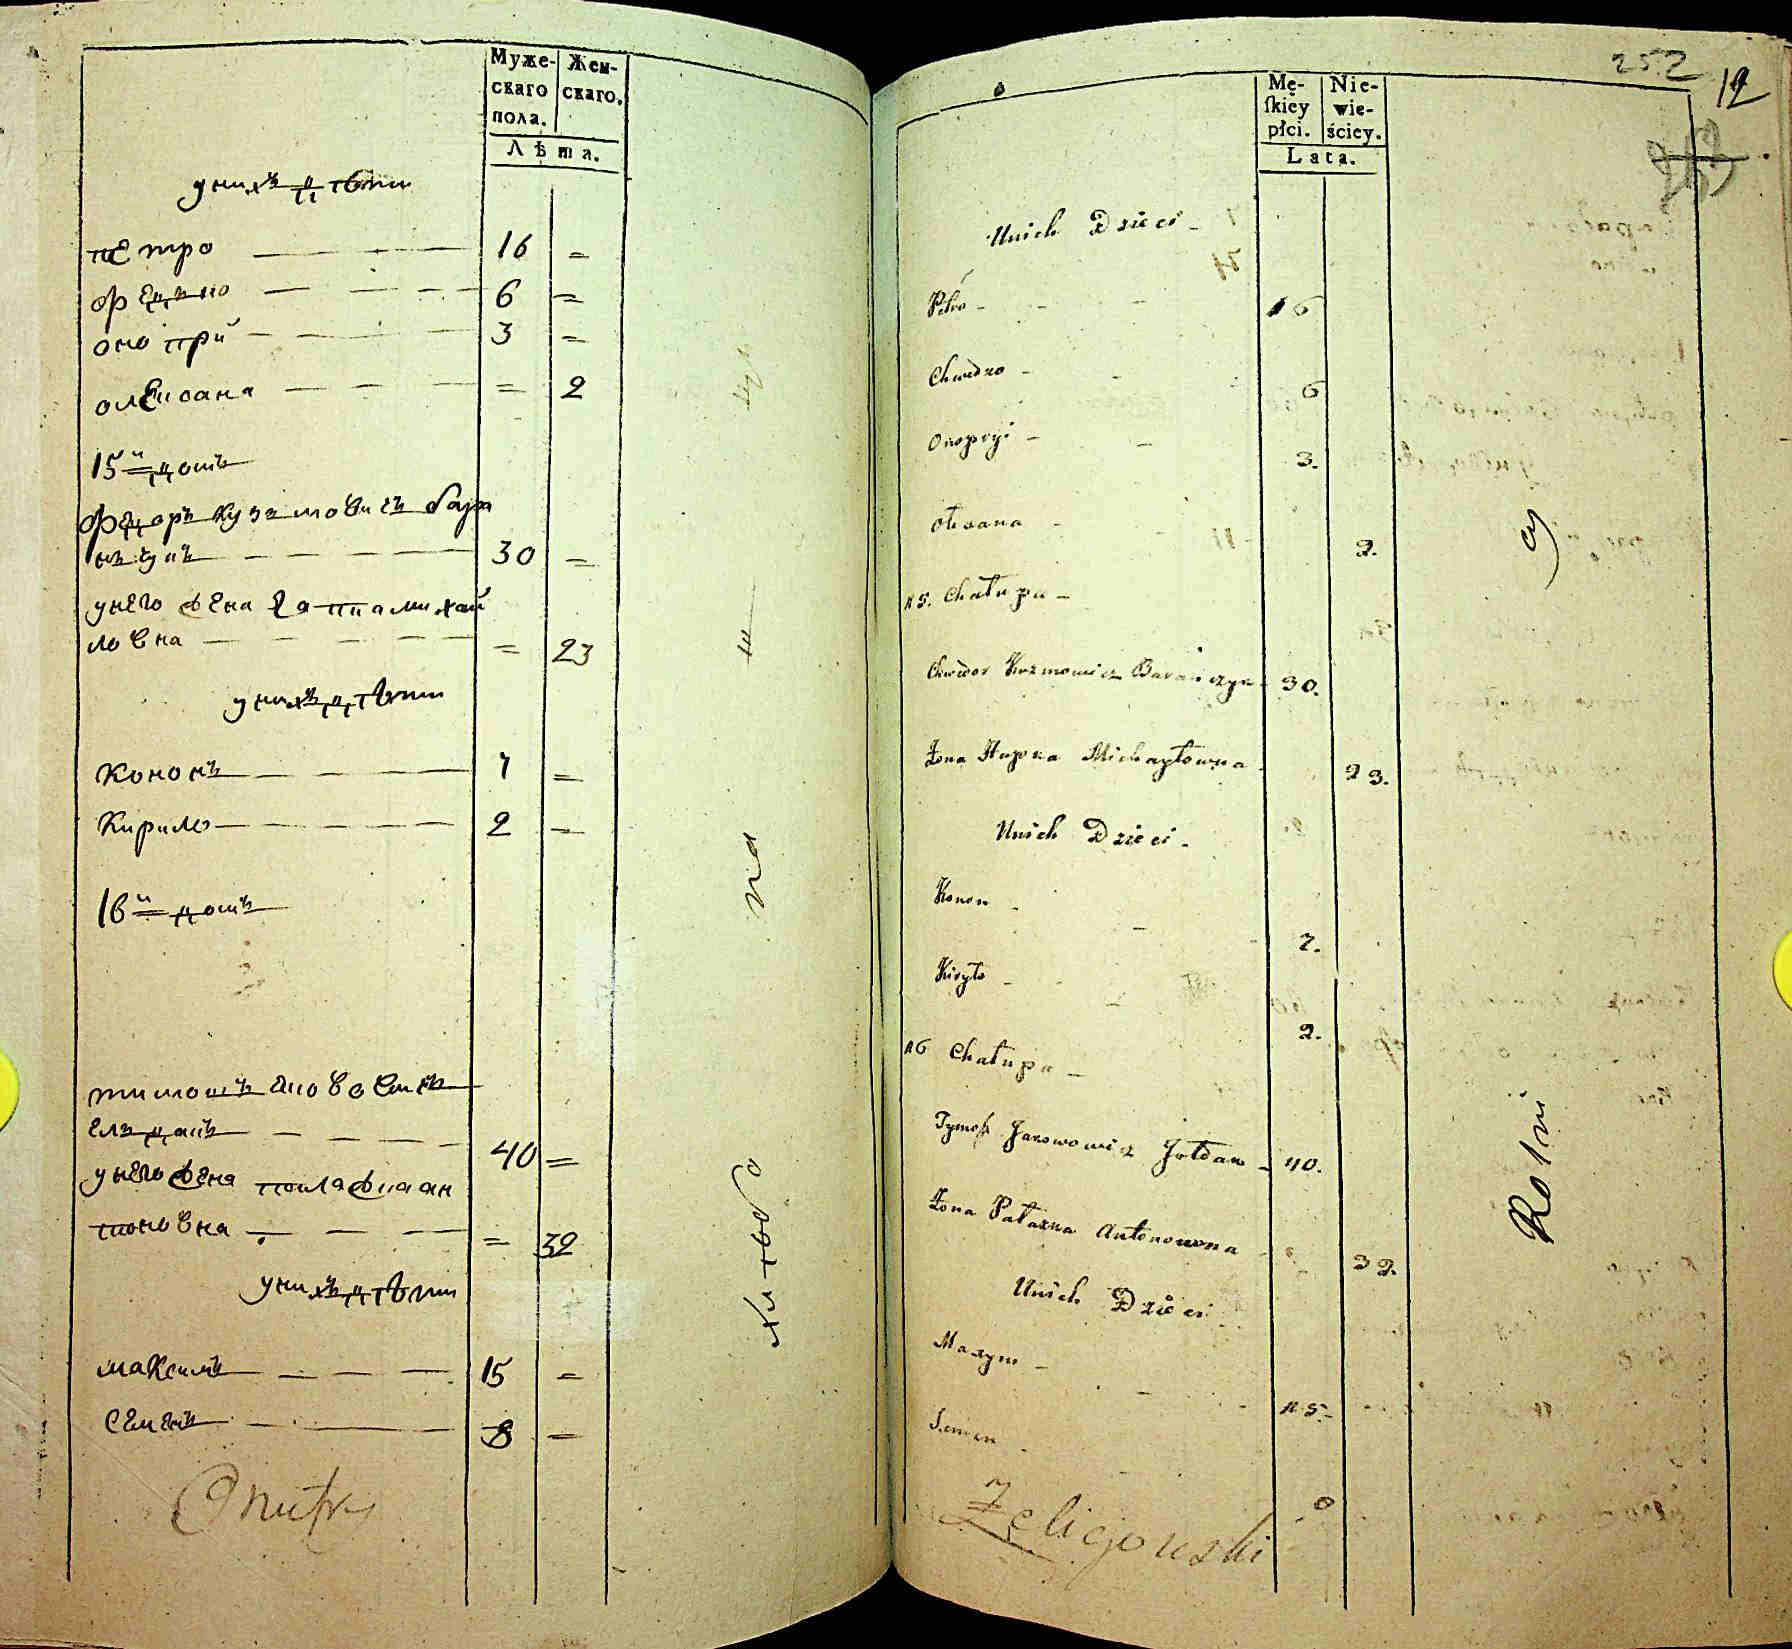 Муже-
скаго
пола.
Жен-
скаго.
Лѣта.
унихъ дѣти
петро 16 =
федько 6 =
оно прій 3 =
олексана = 2
15й домъ
федоръ кузмовичъ бара
нъчукъ 30 =
унего жена гапка михай
ловна = 23
унихъ дѣти
кононъ 7 =
кирило 2 =
16й домъ
тимошъ
40 =
унего жена палажка ан
тоновна = 32
унихъ дѣти
максимъ 15 =
семенъ 8 =
хлѣбо па ш
Dmitry
252
12
Mę-
skiey
płci.
Nie-
wie-
ściey.
Lata.
Unich Dzieci
Petro 16
Chwedko 6
Onopryi 3.
Olexana 2.
15. Chałupa
Chwedor Kuzmowicz Baranczyn 30.
Żona Hapka Michayłowna 23.
Unich Dzieci
Konon 7.
Kiryło 2.
16 Chałupa
Tymosz Jakowowicz Jołdan 40.
Żona Pałaxka Antonowna 32.
Unich Dzieci
Maxym 15.
Semen 8
Rolni cy
Żeligowski